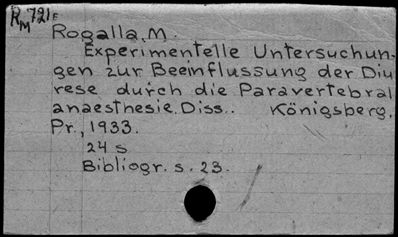 RM 721E
Rogalla, M.
Experimentelle Untersuchun-
gen zur Beeinflussung der Diu
rese durch die Paravertebral
anaesthesie. Diss.. Königsberg.
Pr., 1933.
24 s
Bibliogr. s. 23.